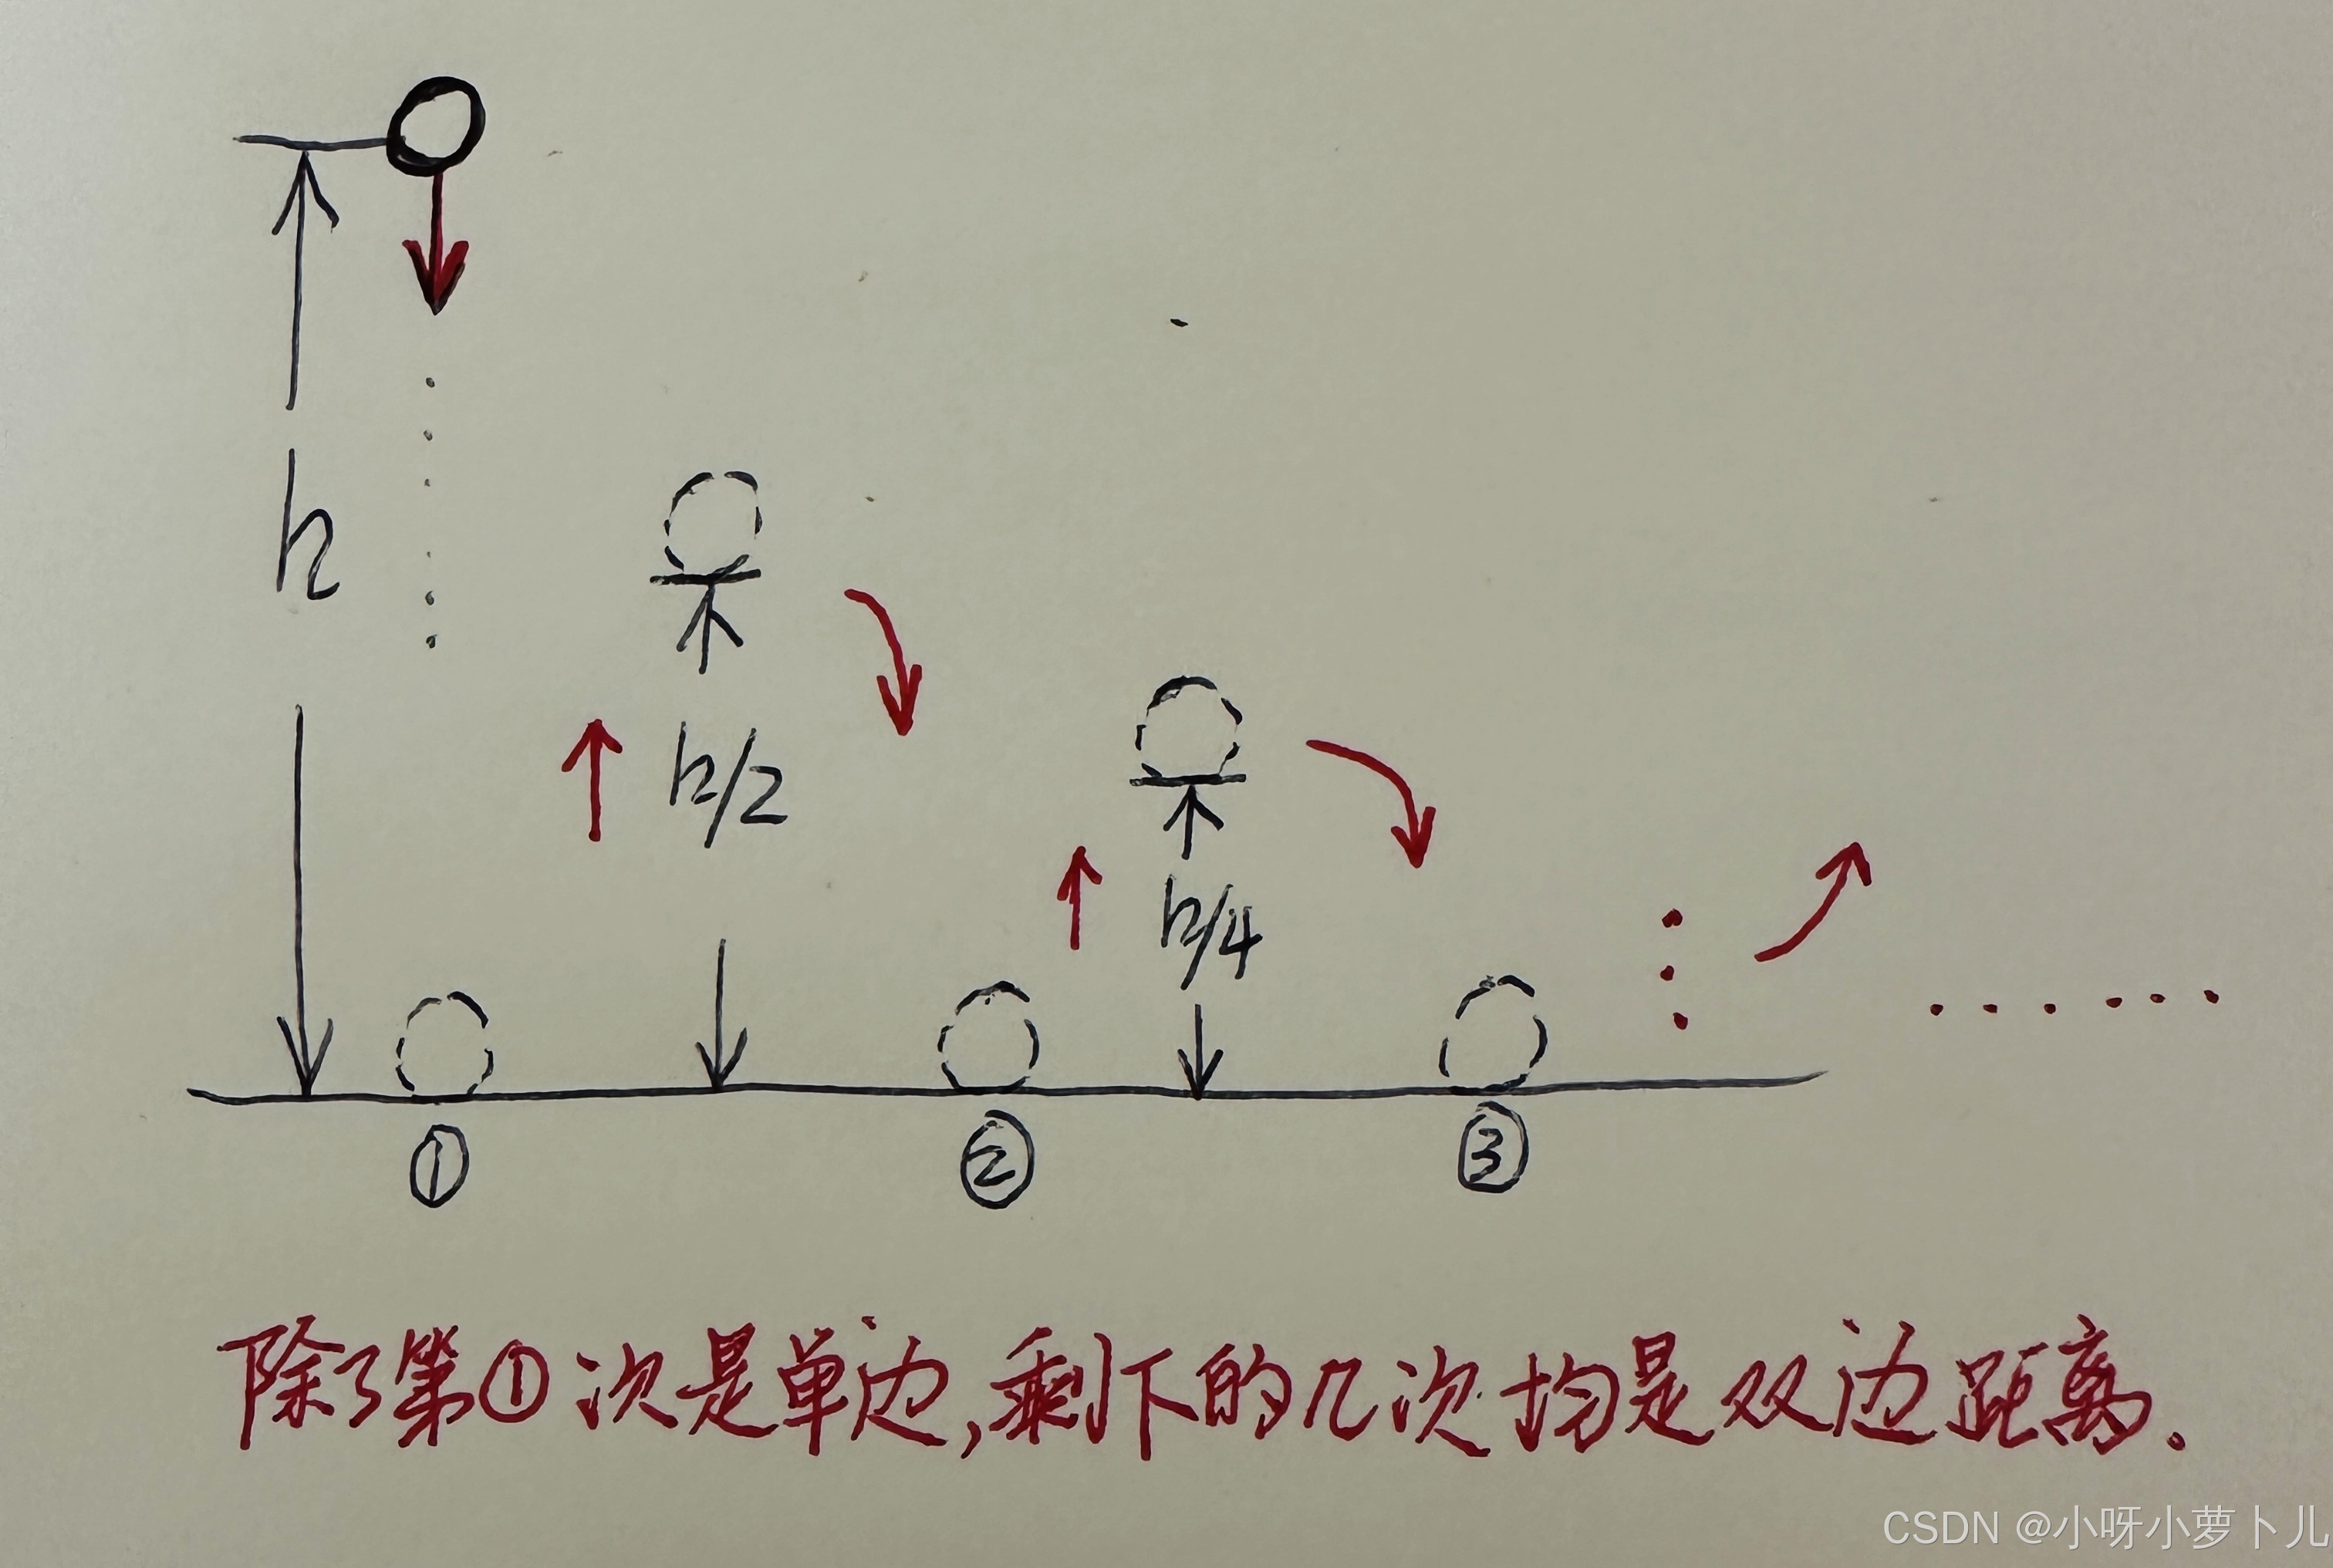 h
h/2
h/4
①
②
③
除了第①次是单边,剩下的几次均是双边距离.
CSDN @小呀小萝卜儿